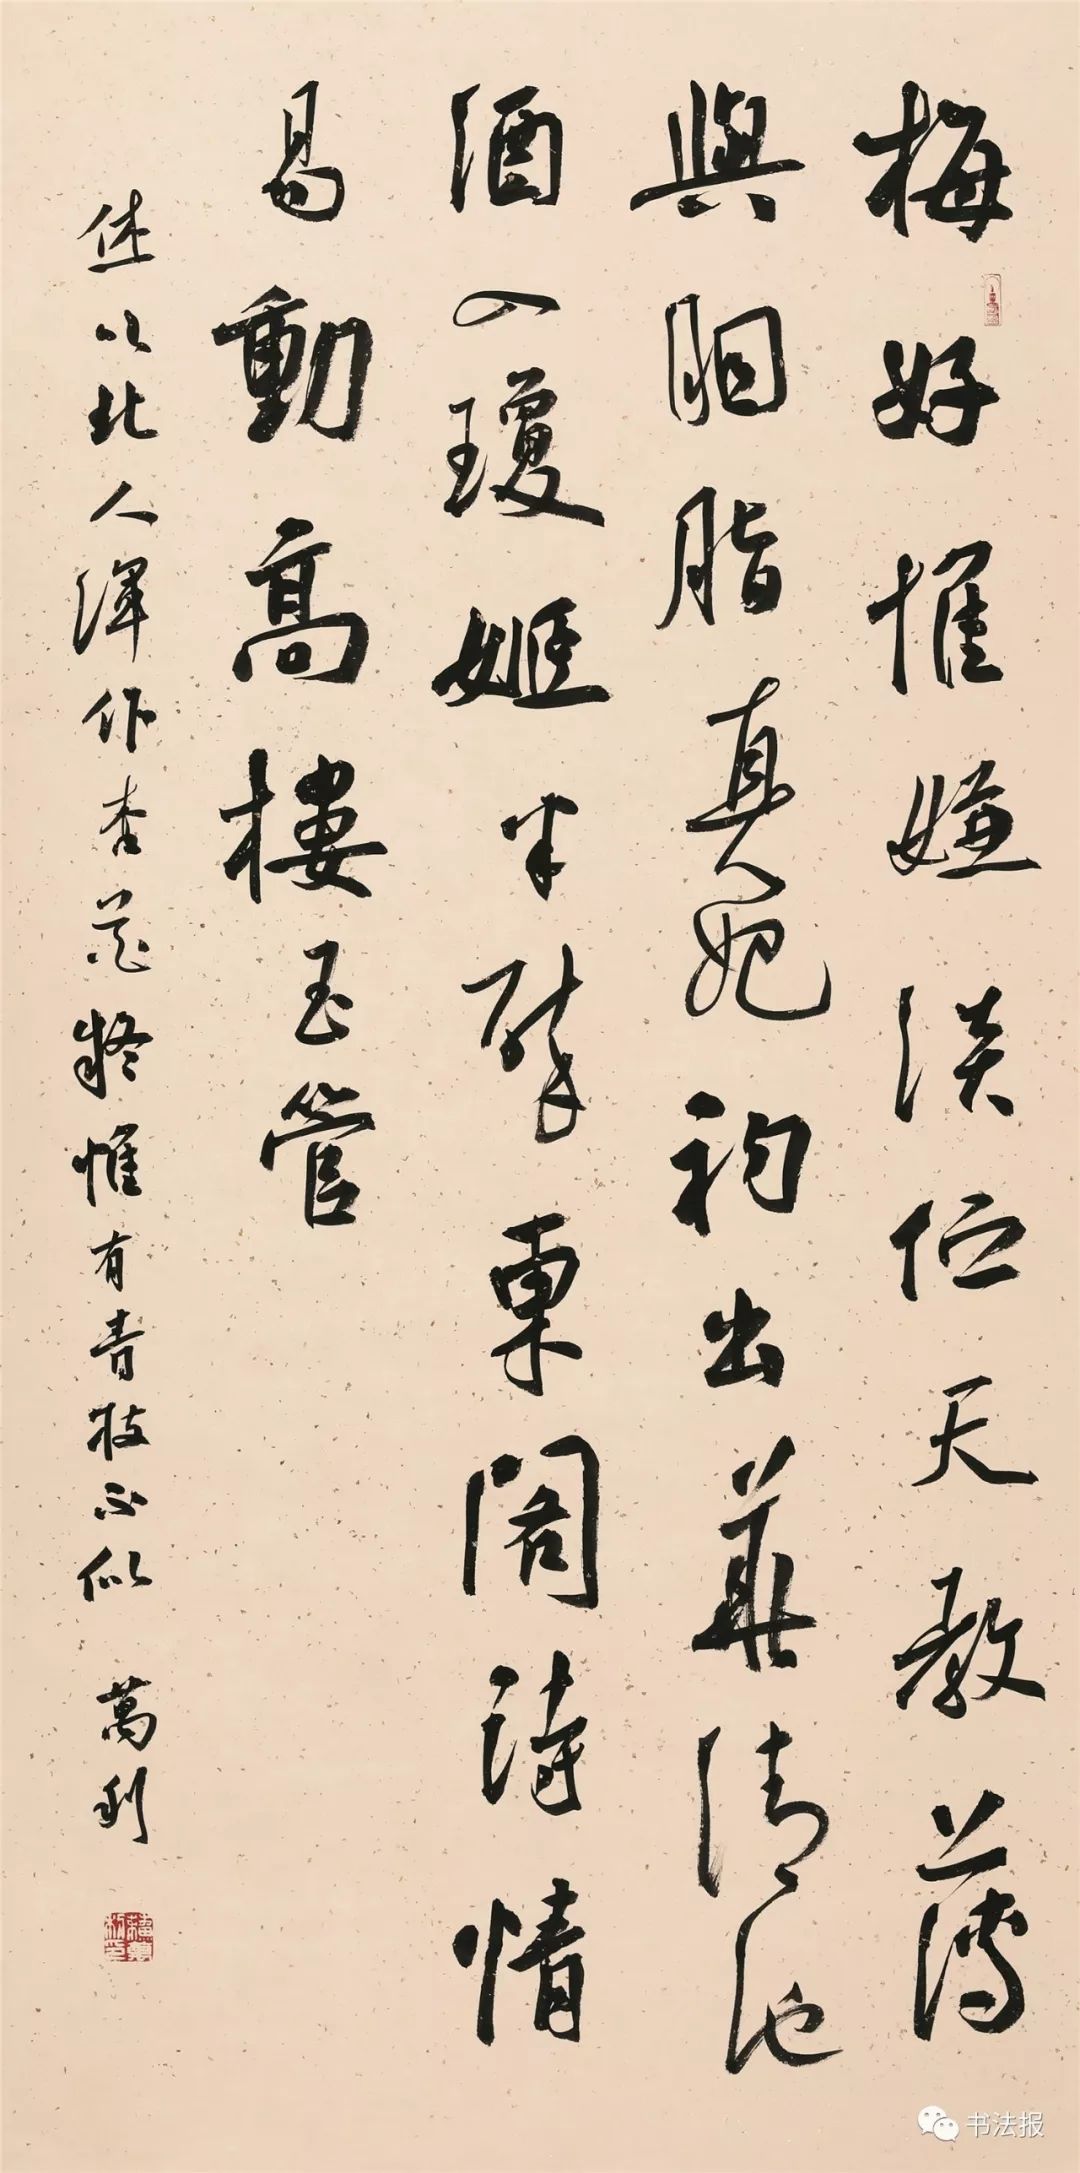 梅好惟嫌淡伫天教薄
與胭脂真妃初出華清池
酒入瓊姬半醉東閣詩情
易動高樓玉管
休吹北人渾作杏花疑惟有青枝不似 萬利
书法报